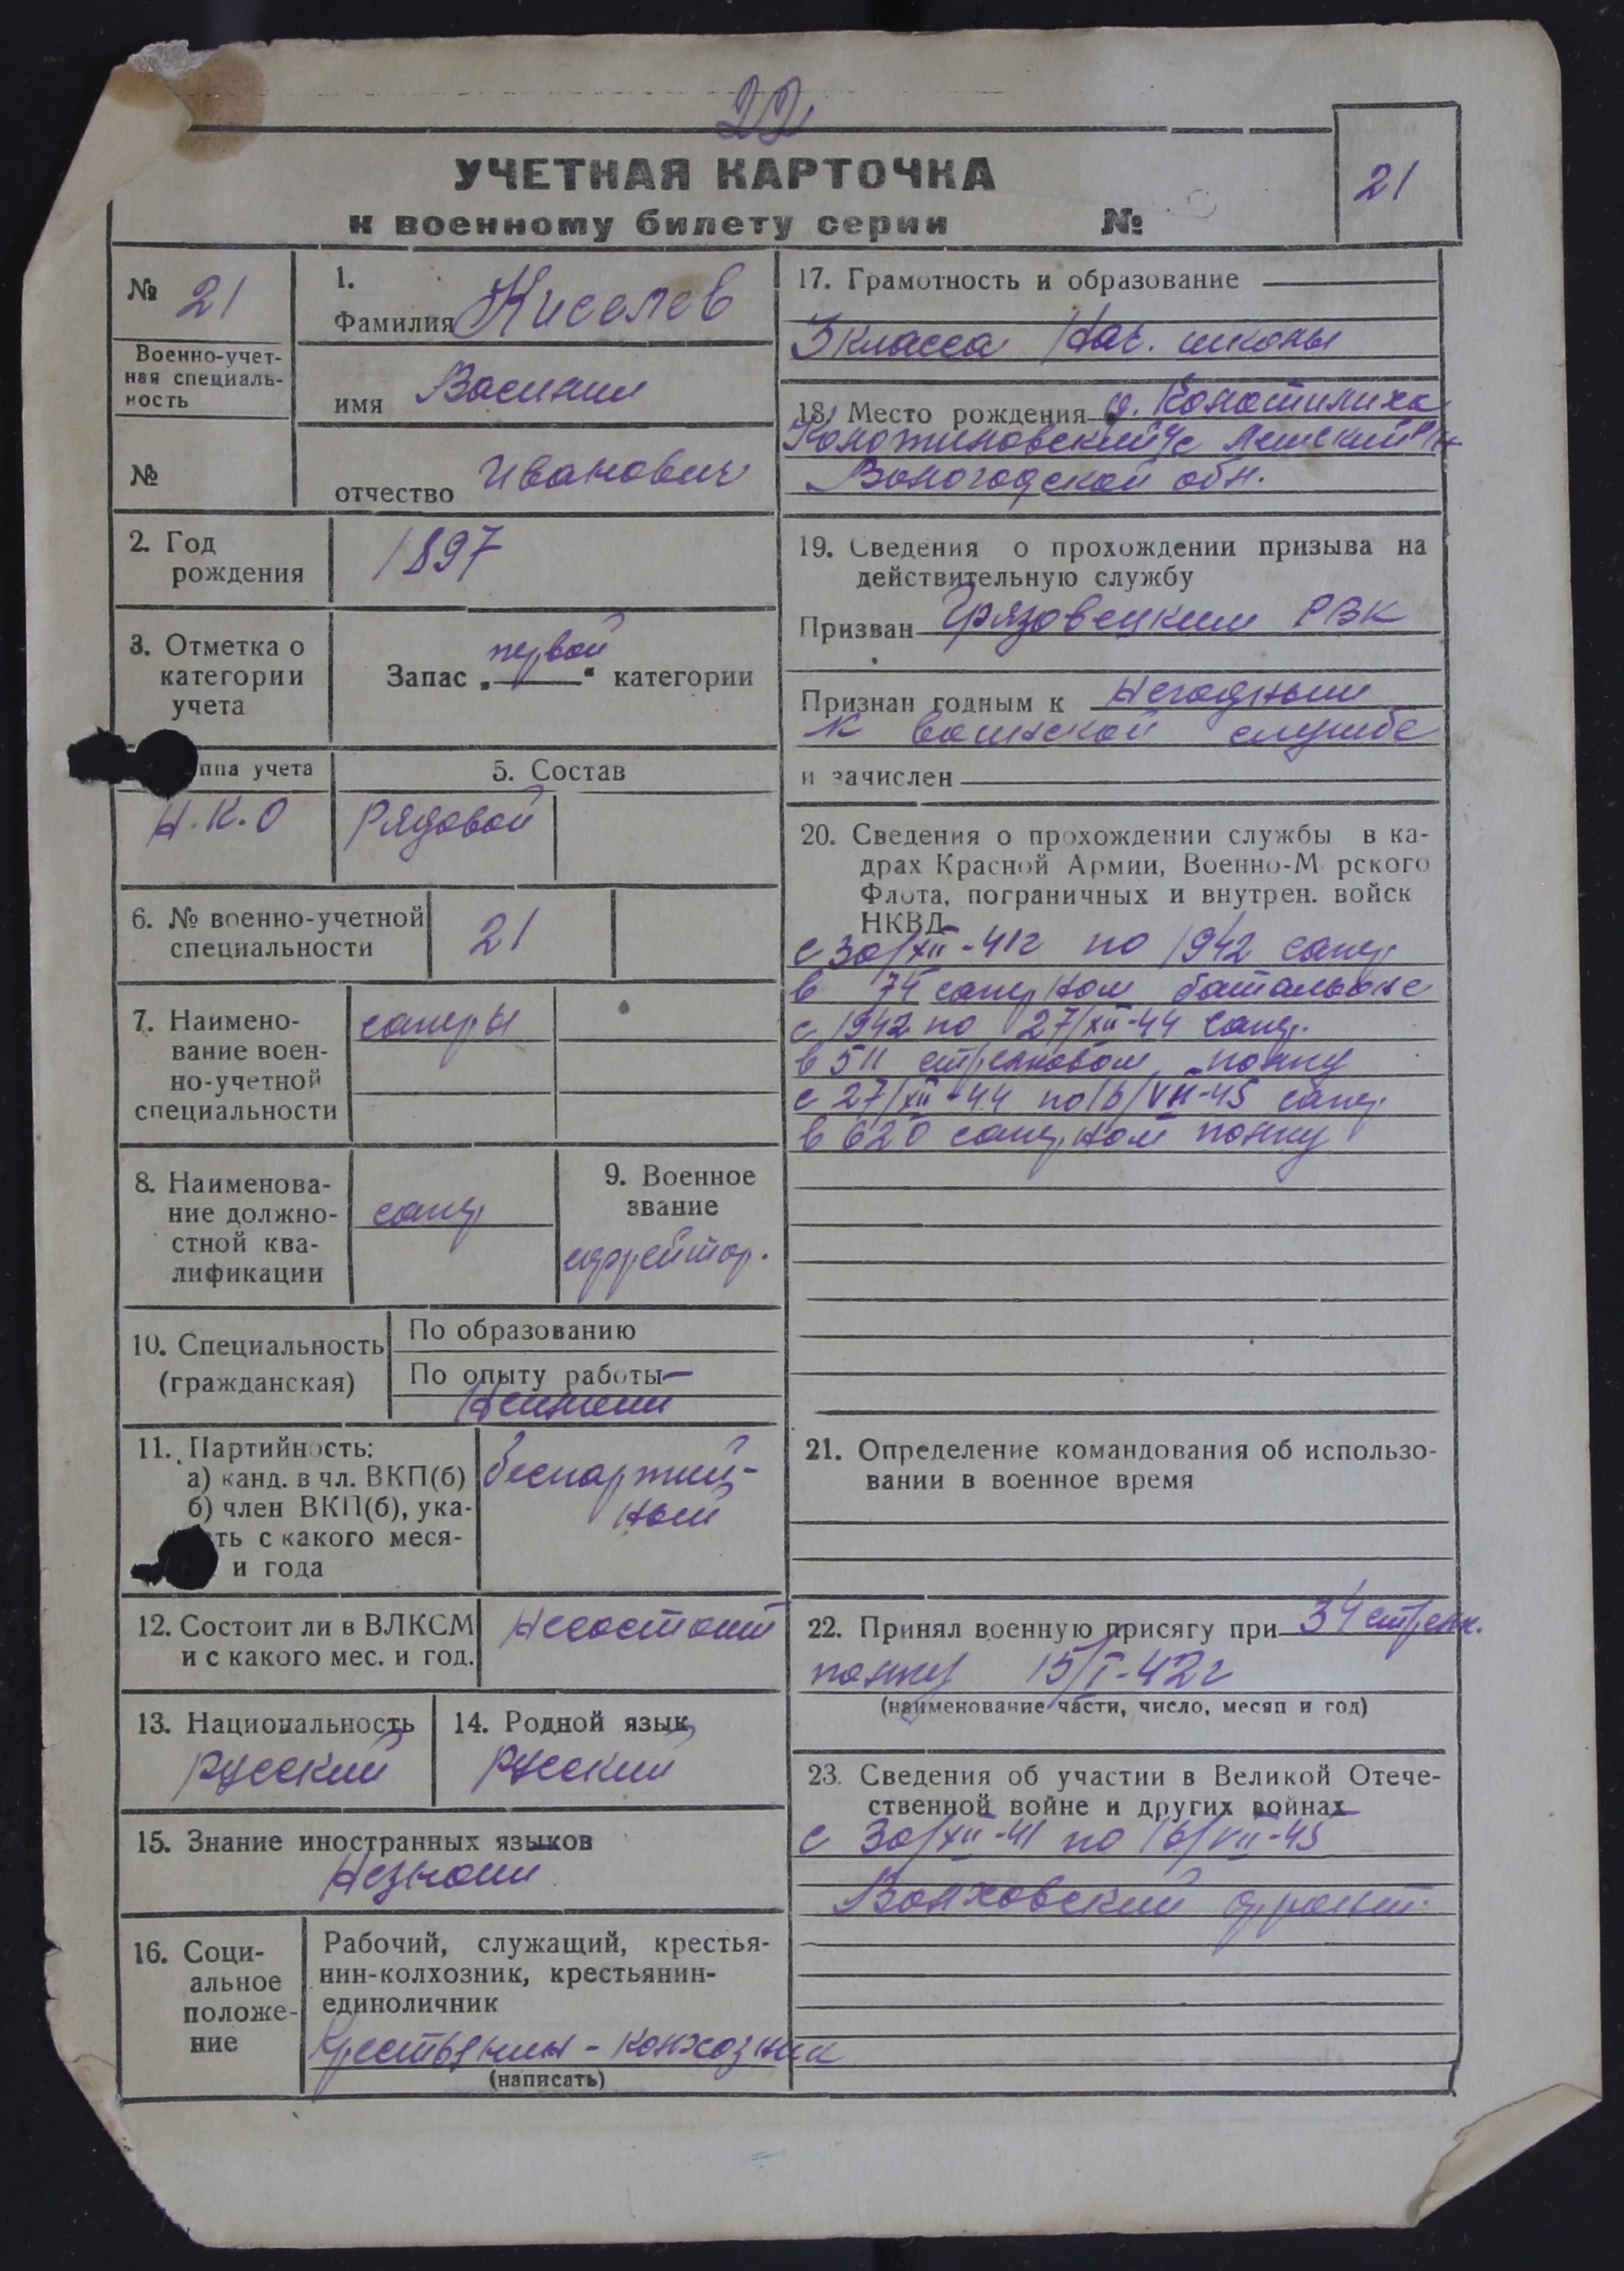 22
УЧЕТНАЯ КАРТОЧКА
к военному билету серии №
21
№ 21
Военно-учет-
ная специаль-
ность
№
1.
Фамилия Киселев
имя Василий
отчество Иванович
2. Год
рождения
1897
3. Отметка о
категории
учета
Запас „первой" категории
ппа учета
Н.К.О
5. Состав
Рядовой
6. № военно-учетной
специальности
21
7. Наимено-
вание воен-
но-учетной
специальности
саперы
8. Наименова-
ние должно-
стной ква-
лификации
сапер
9. Военное
звание
ефрейтор.
10. Специальность
(гражданская)
По образованию
По опыту работы
Неимеет
11. Партийность:
а) канд. в чл. ВКП(б)
б) член ВКП(б), ука-
ть с какого меся-
и года
беспартий-
ный
12. Состоит ли в ВЛКСМ
и с какого мес. и год.
Несостоит
13. Национальность
Русский
14. Родной язык
Русский
15. Знание иностранных языков
Незнает
16. Соци-
альное
положе-
ние
Рабочий, служащий, крестья-
нин-колхозник, крестьянин-
единоличник
Крестьянин-колхозник
(написать)
17. Грамотность и образование
3 класса Нач. школы
18. Место рождения д.
с/с
Вологодской обл.
19. Сведения о прохождении призыва на
действительную службу
Призван Грязовецким РВК
Признан годным к Негодным
к воинской службе
и зачислен
20. Сведения о прохождении службы в ка-
драх Красной Армии, Военно-М рского
Флота, пограничных и внутрен. войск
НКВД
с 30/XII-41г по 1942 сапер
в 74 саперном батальоне
с 1942 по 27/XII-44 сапер.
в 511 стрелковом полку
с 27/XII-44 по 16/VII-45 сапер.
в 620 саперном полку
21. Определение командования об использо-
вании в военное время
22. Принял военную присягу при 34 стрелк.
полку 15/I-42г
(наименование части, число, месяц и год)
23. Сведения об участии в Великой Отече-
ственной войне и других войнах
с 30/XII-41 по 16/VII-45
Волховский фронт.